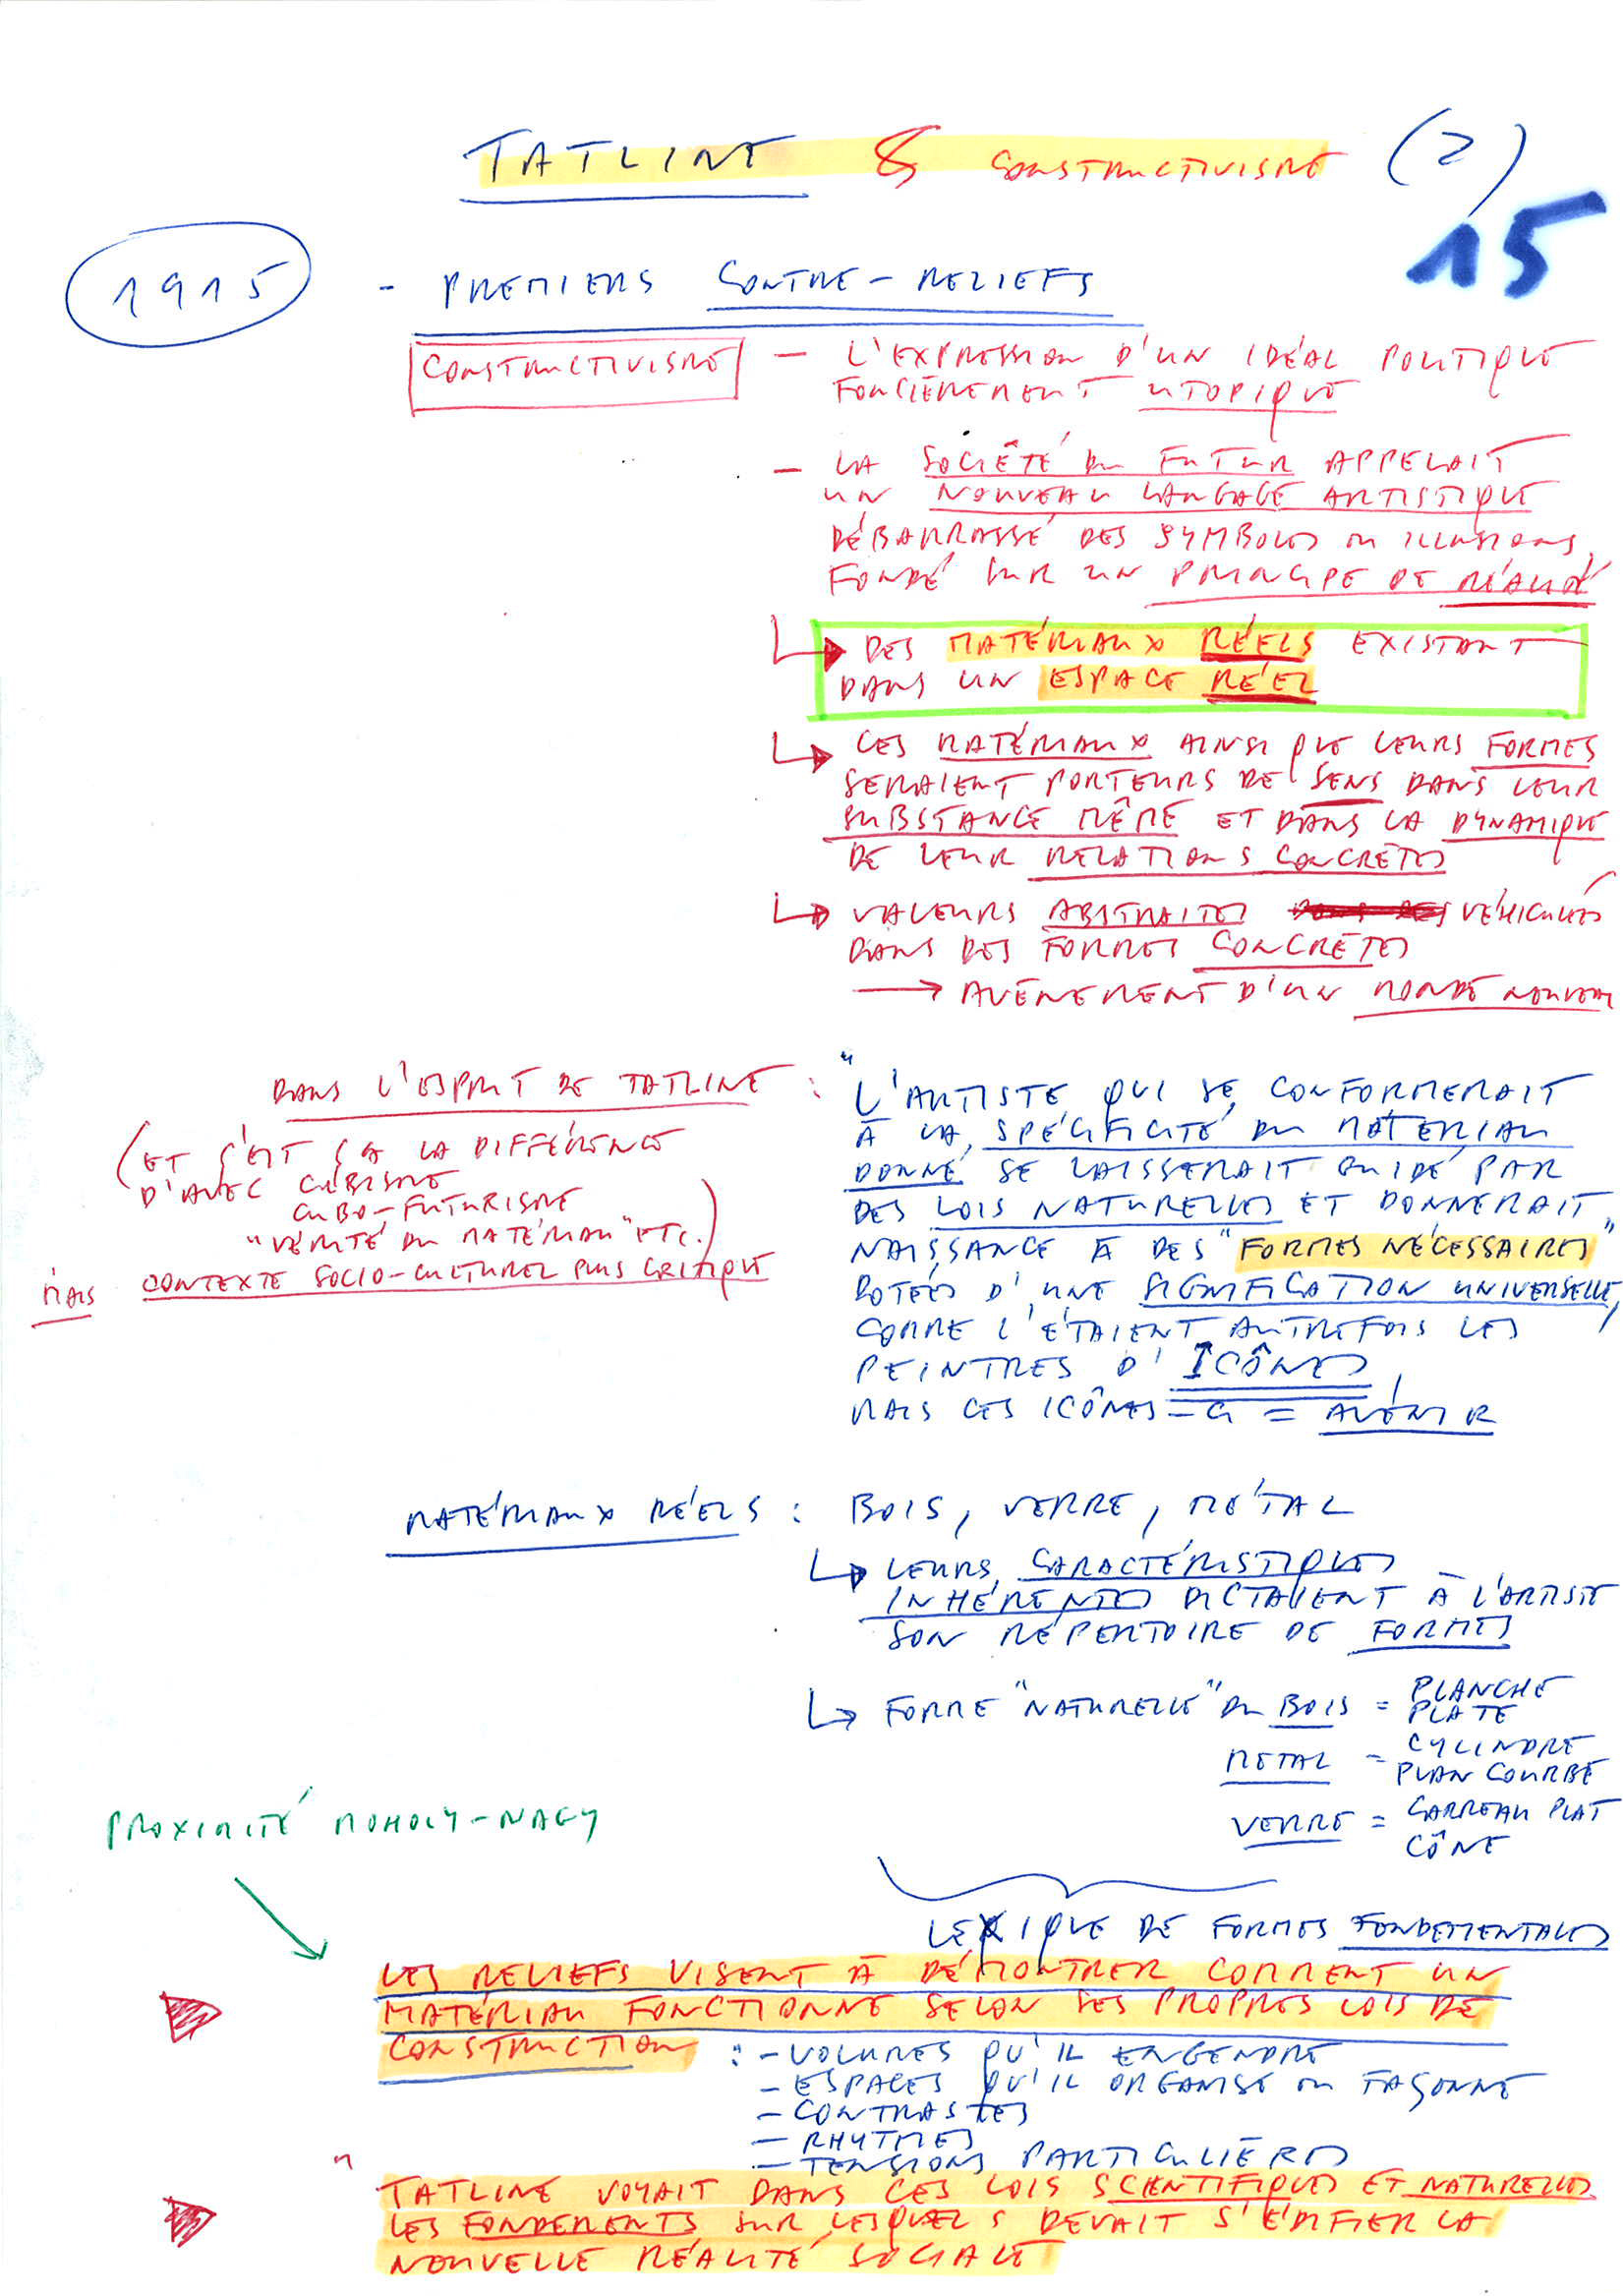 TATLINE & CONSTRUCTIVISME (2)
15
1915 - PREMIERS CONTRE-RELIEFS
CONSTRUCTIVISME — L'EXPRESSION D'UN IDÉAL POLITIQUE
FONCIÈREMENT UTOPIQUE
— LA SOCIÉTÉ DU FUTUR APPELAIT
UN NOUVEAU LANGAGE ARTISTIQUE
DÉBARRASSÉ DES SYMBOLES OU ILLUSIONS,
FONDÉ SUR UN PRINCIPE DE RÉALITÉ
↳ DES MATÉRIAUX RÉELS EXISTANT
DANS UN ESPACE RÉEL
↳ CES MATÉRIAUX AINSI QUE LEURS FORMES
SERAIENT PORTEURS DE SENS DANS LEUR
SUBSTANCE MÊME ET DANS LA DYNAMIQUE
DE LEUR RELATIONS CONCRÈTES
↳ VALEURS ABSTRAITES VÉHICULÉES
DANS DES FORMES CONCRÈTES
→ AVÈNEMENT D'UN MONDE NOUVEAU
DANS L'ESPRIT DE TATLINE :
(ET C'EST ÇA LA DIFFÉRENCE
D'AVEC CUBISME
CUBO-FUTURISME
"VÉRITÉ DU MATÉRIAU" ETC.)
MAIS CONTEXTE SOCIO-CULTUREL PLUS CRITIQUE
"L'ARTISTE QUI SE CONFORMERAIT
À LA SPÉCIFICITÉ DU MATÉRIAU
DONNÉ SE LAISSERAIT GUIDÉ PAR
DES LOIS NATURELLES ET DONNERAIT
NAISSANCE À DES "FORMES NÉCESSAIRES"
DOTÉES D'UNE SIGNIFICATION UNIVERSELLE,
COMME L'ÉTAIENT AUTREFOIS LES
PEINTRES D'ICÔNES,
MAIS CES ICÔNES-CI = AVENIR
MATÉRIAUX RÉELS : BOIS, VERRE, MÉTAL
↳ LEURS CARACTÉRISTIQUES
INHÉRENTES DICTAIENT À L'ARTISTE
SON RÉPERTOIRE DE FORMES
↳ FORME "NATURELLE" DU BOIS = PLANCHE
PLATE
METAL = CYLINDRE
PLAN COURBE
VERRE = CARREAU PLAT
CÔNE
PROXIMITÉ MOHOLY-NAGY
LEXIQUE DE FORMES FONDEMENTALES
LES RELIEFS VISENT À DÉMONTRER COMMENT UN
MATÉRIAU FONCTIONNE SELON SES PROPRES LOIS DE
CONSTRUCTION : - VOLUMES QU'IL ENGENDRE
- ESPACES QU'IL ORGANISE OU FAÇONNE
- CONTRASTES
- RHYTMES
- TENSIONS PARTICULIÈRES
" TATLINE VOYAIT DANS CES LOIS SCIENTIFIQUES ET NATURELLES
LES FONDEMENTS SUR LESQUELS DEVAIT S'ÉDIFIER LA
NOUVELLE RÉALITÉ SOCIALE